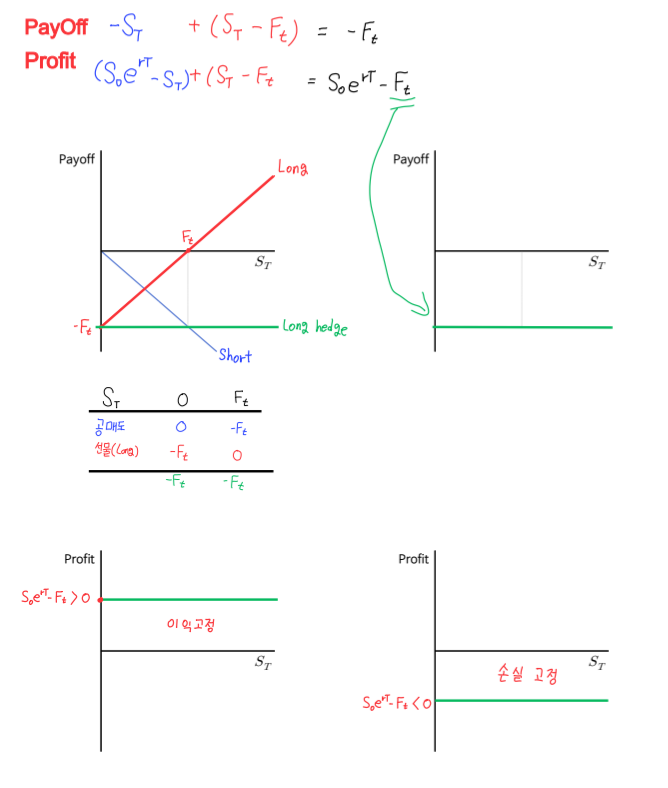 PayOff -S_T + (S_T - F_t) = -F_t
Profit (S₀e^{rT} - S_T) + (S_T - F_t = S₀e^{rT} - F_t
Payoff
Long
F_t
S_T
-F_t
Long hedge
Short
Payoff
S_T
S_T 0 F_t
공매도 0 -F_t
선물(Long) -F_t 0
-F_t -F_t
Profit
S₀e^{rT} - F_t > 0
이익고정
S_T
Profit
S_T
손실 고정
S₀e^{rT} - F_t < 0